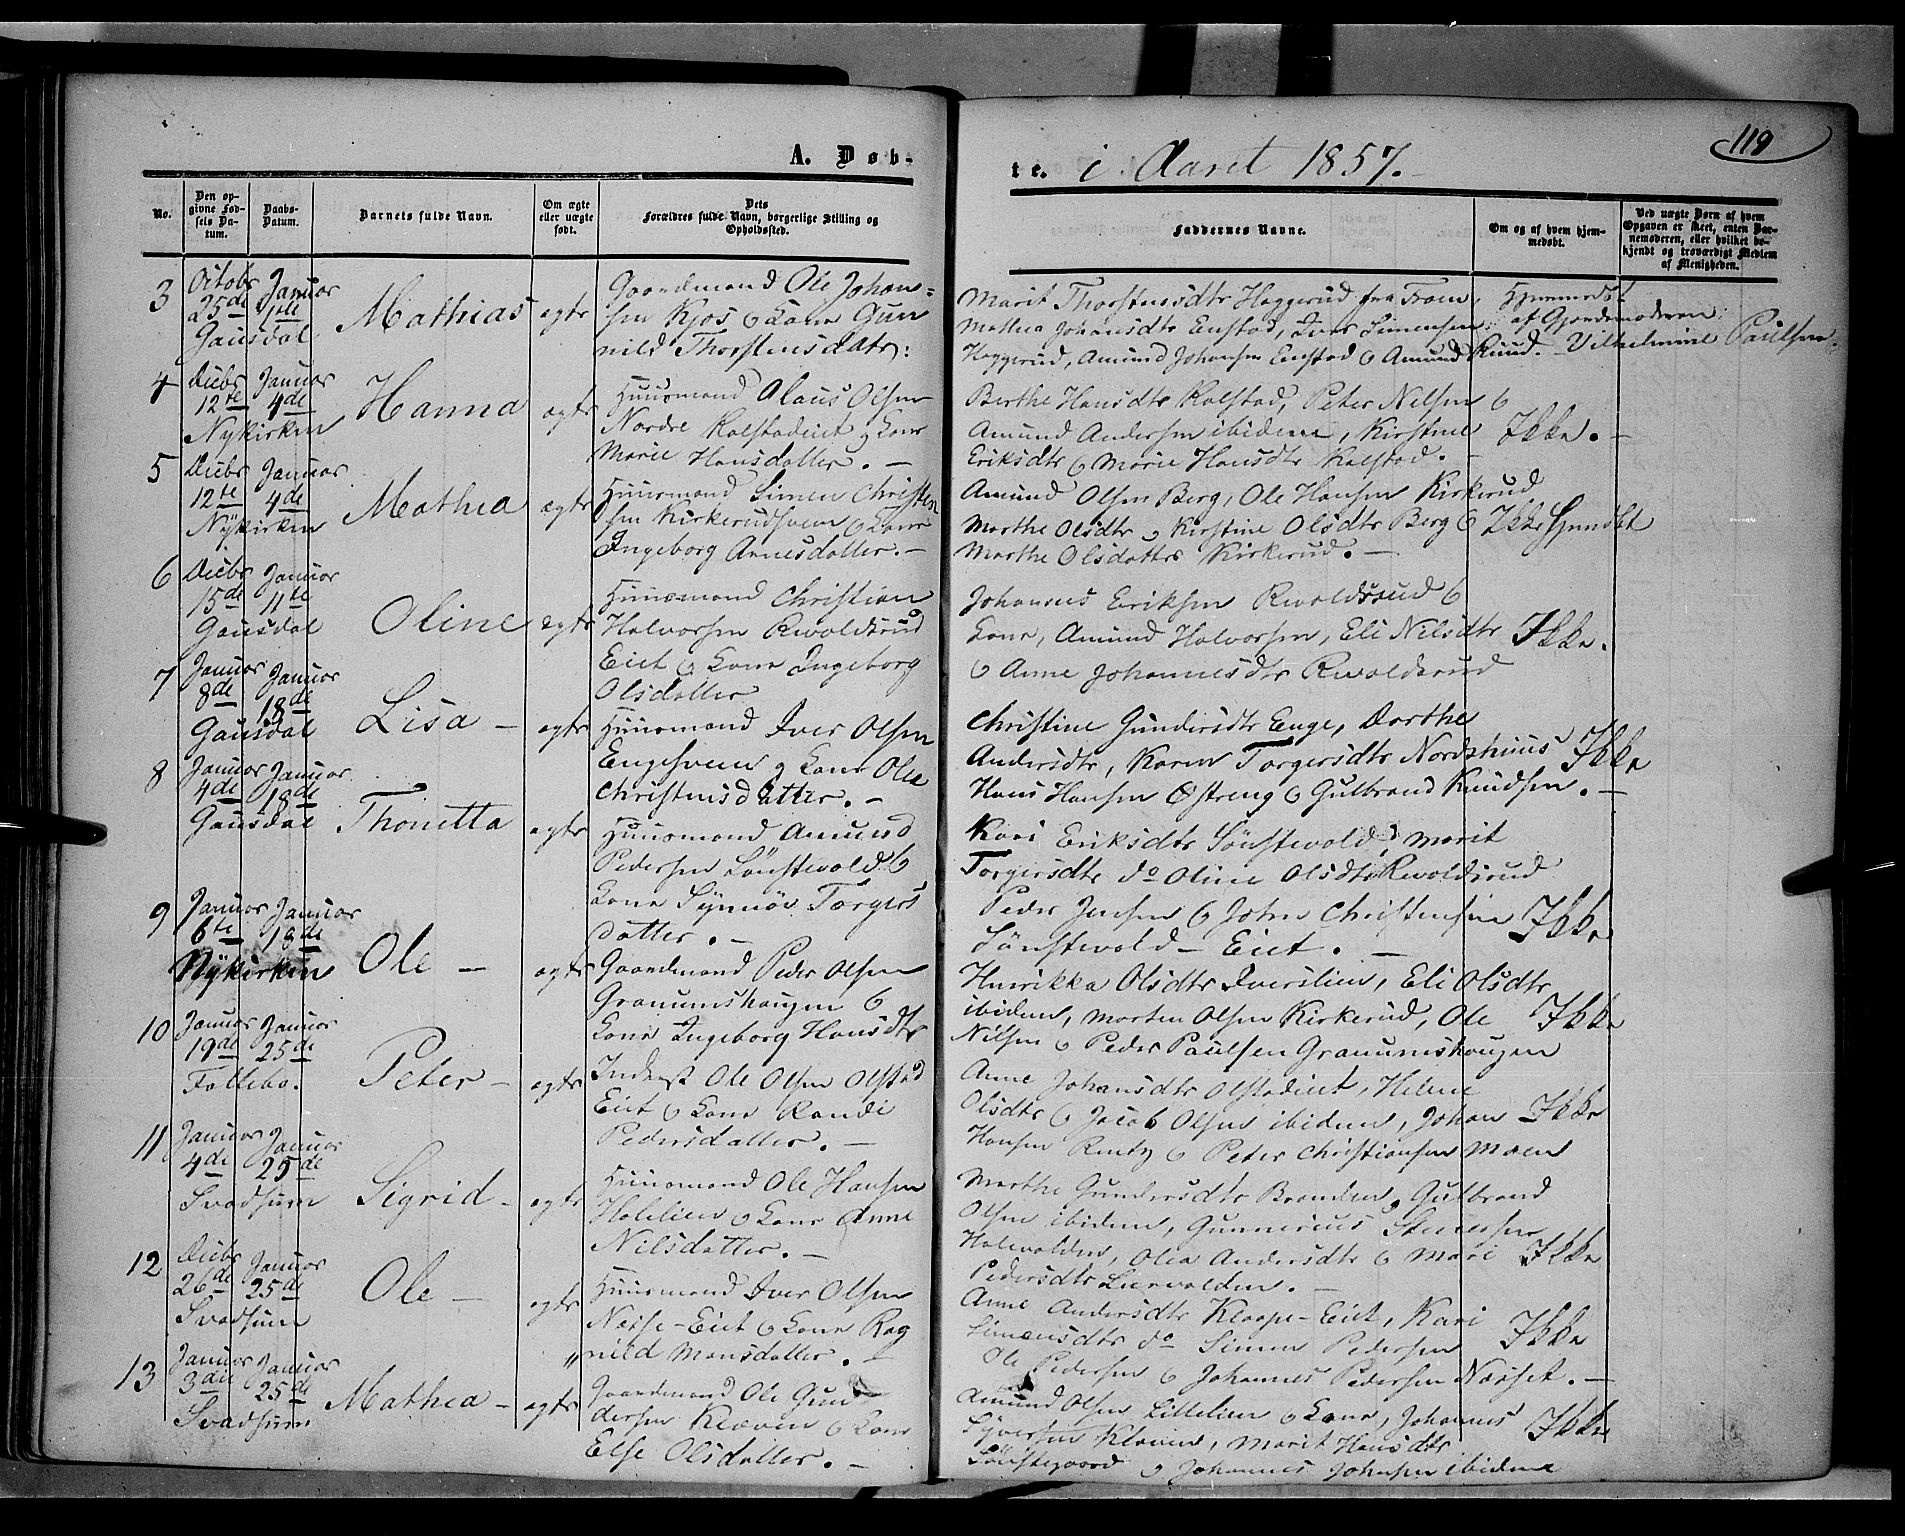 A. Døb-
te. i Aaret 1857.
119
No.
Den opgivne Fødsels Datum.
Daabs-Datum.
Barnets fulde Navn.
Om ægte eller uægte født.
Dets Forældres fulde Navn, borgerlige Stilling og Opholdssted.
Faddernes Navne.
Om og af hvem hjemmedøbt.
Ved uægte Børn af hvem Opgaven er skeet, enten Barnemoderen, eller hvilket bekjendt og troværdigt Medlem af Menigheden.
3
Octobr Januar
25de 1ste
Gausdal
Mathias
ægte
Gaardmand Ole Johan-
sen Kjos & Kone Gun
nild Thorstensdatr:
Marit Thorstensdtr Haggerud fra Fron,
Mathea Johansdtr Enstad, Iver Simensen
Haggerud, Amund Johansen Enstad & Amund Ruud.
Hjemmedøbt
af Gjordemoderen
Vilhelmine Paulsen
4
Decbr Januar
12te 4de
Nykirken
Hanna
ægte
Huusmand Olaus Olsen
Nordre Kalstadeiet & Kone
Marie Hansdatter. –
Berthe Hansdtr Kalstad, Peter Nilsen &
Amund Andersen ibidem, Kirstine
Eriksdtr & Marie Hansdtr Kalstad.
Ikke. –
5
Decbr Januar
12te 4de
Nykirken
Mathea
ægte
Huusmand Simen Christen
sen Kirkerudsveen & Kone
Ingeborg Arnesdatter. –
Amund Olsen Berg, Ole Hansen Kirkerud
Marthe Olsdtr & Kirstine Olsdtr Berg &
Marthe Olsdatter Kirkerud. –
Ikke hjemdbt
6
Decbr Januar
15de 11te
Gausdal
Oline
ægte
Huusmand Christian
Halvorsen Rwoldsrud
Eiet & Kone Ingeborg
Olsdatter
Johannes Eriksen Rwoldsrud &
Kone, Amund Halvorsen, Eli Nilsdtr
& Anne Johannesdtr Rwoldsrud
Ikke.
7
Januar Januar
8de 18de
Gausdal
Lisa –
ægte
Huusmand Iver Olsen
Engesveen & Kone Olea
Christensdatter. –
Christine Gundersdtr Enge, Dorthe
Andersdtr, Karen Torgersdtr Nordshuus
Hans Hansen Østreng & Gulbrand Knudsen. –
Ikke
8
Januar Januar
4de 18de
Gausdal
Thonetta
ægte
Huusmand Amund
Pedersen Sönstevold &
Kone Synnöv Torgers
datter. –
Kari Eriksdtr Sönstevold, Marit
Torgersdtr do Oline Olsdtr Rwoldsrud
Peder Jensen & John Christensen
Sönstevold – Eiet. –
Ikke
9
Januar Januar
6te 18de
Nykirken
Ole –
ægte
Gaardmand Peder Olsen
Granumshaugen &
Kone Ingeborg Hansdtr
Henrikka Olsdtr Iverslien, Eli Olsdtr
ibidem, Morten Olsen Kirkerud, Ole
Nilsen & Peder Paulsen Granumshaugen
Ikke
10
Januar Januar
19de 25de
Follebo.
Peter –
ægte
Inderst Ole Olsen Olstad
Eiet & Kone Randi
Pedersdatter. –
Anne Johansdtr Olstadeiet, Helene
Olsdtr & Jacob Olsen ibidem, Johan
Hansen Rentz & Peter Christiansen Moen
Ikke
11
Januar Januar
4de 25de
Svadsum
Sigrid –
ægte
Huusmand Ole Hansen
Holelien & Kone Anne
Nilsdatter. –
Marthe Gundersdtr Branden, Gulbrand
Olsen ibidem, Gunnerius
Holevolden, Olea Andersdtr & Mari
Pedersdtr Liervolden. –
Ikke
12
Decbr Januar
26de 25de
Svadsum
Ole –
ægte
Huusmand Iver Olsen
Eiet & Kone Rag
nild Monsdatter. –
Anne Andersdtr Klaape-Eiet, Kari
Simensdtr do Simen Pedersen
Ole Pedersen & Johannes Pedersen Norset. –
Ikke
13
Januar Januar
3die 25de
Svadsum
Mathea –
ægte
Gaardmand Ole Gun
dersen Kleven & Kone
Else Olsdatter. –
Amund Olsen Lillelien & Kone, Johannes
Syversen Kleven, Marit Hansdtr
Sönstegaard & Johannes Johnsen ibidem
Ikke